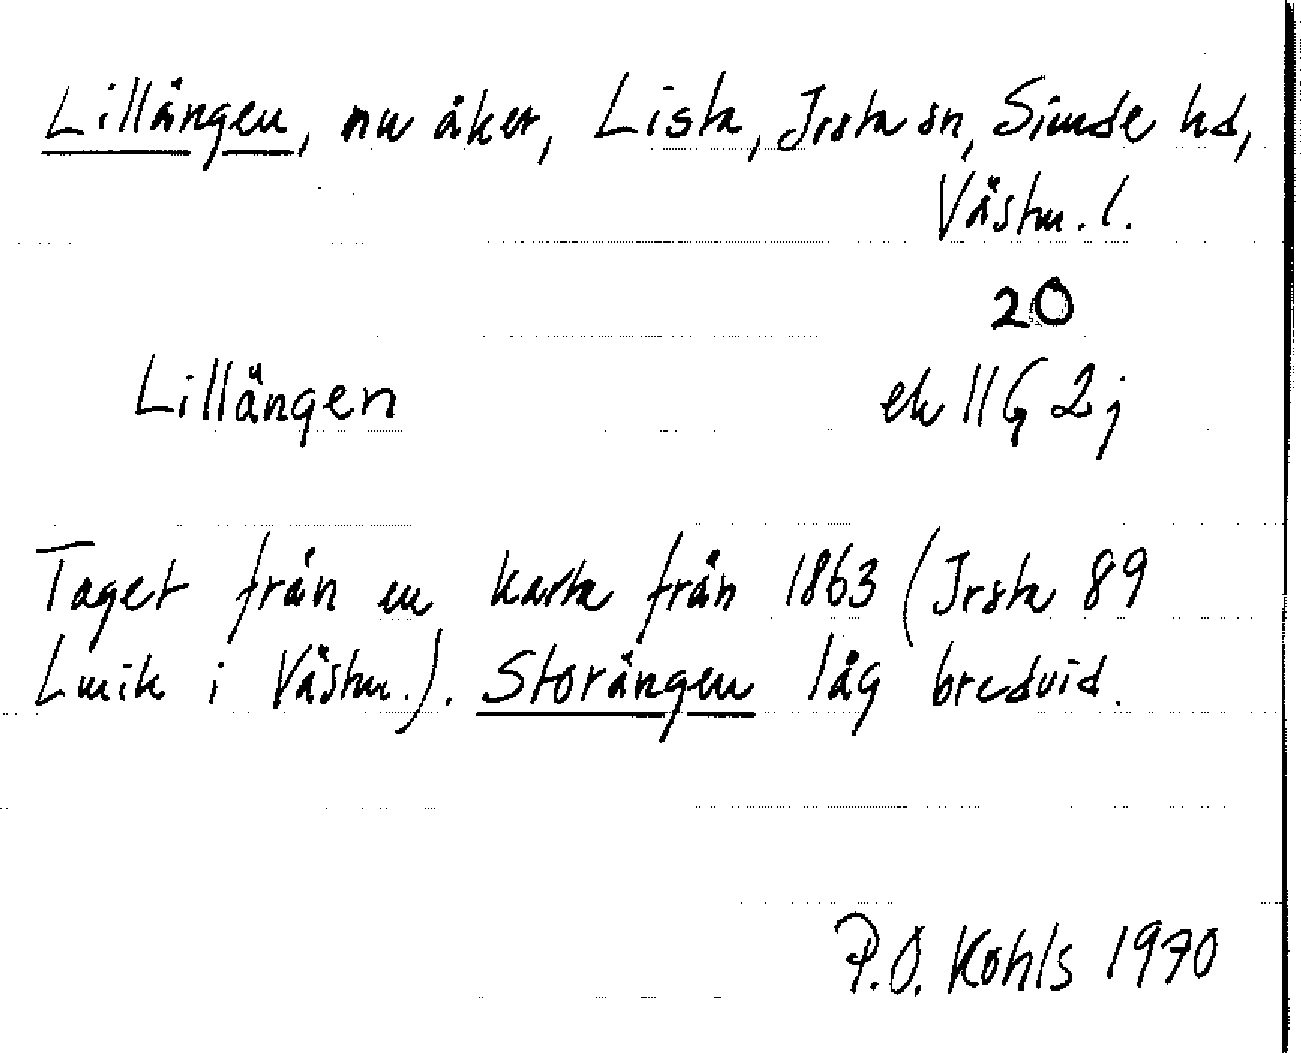 Lillängen, nu åker, Lista, Irsta sn, Siende hd,
Västm. l.
20
Lillängen ek 11G 2j
Taget från en karta från 1863 (Irsta 89
Lmik i Västm.). Storängen låg bredvid.
P.O. Kohls 1970